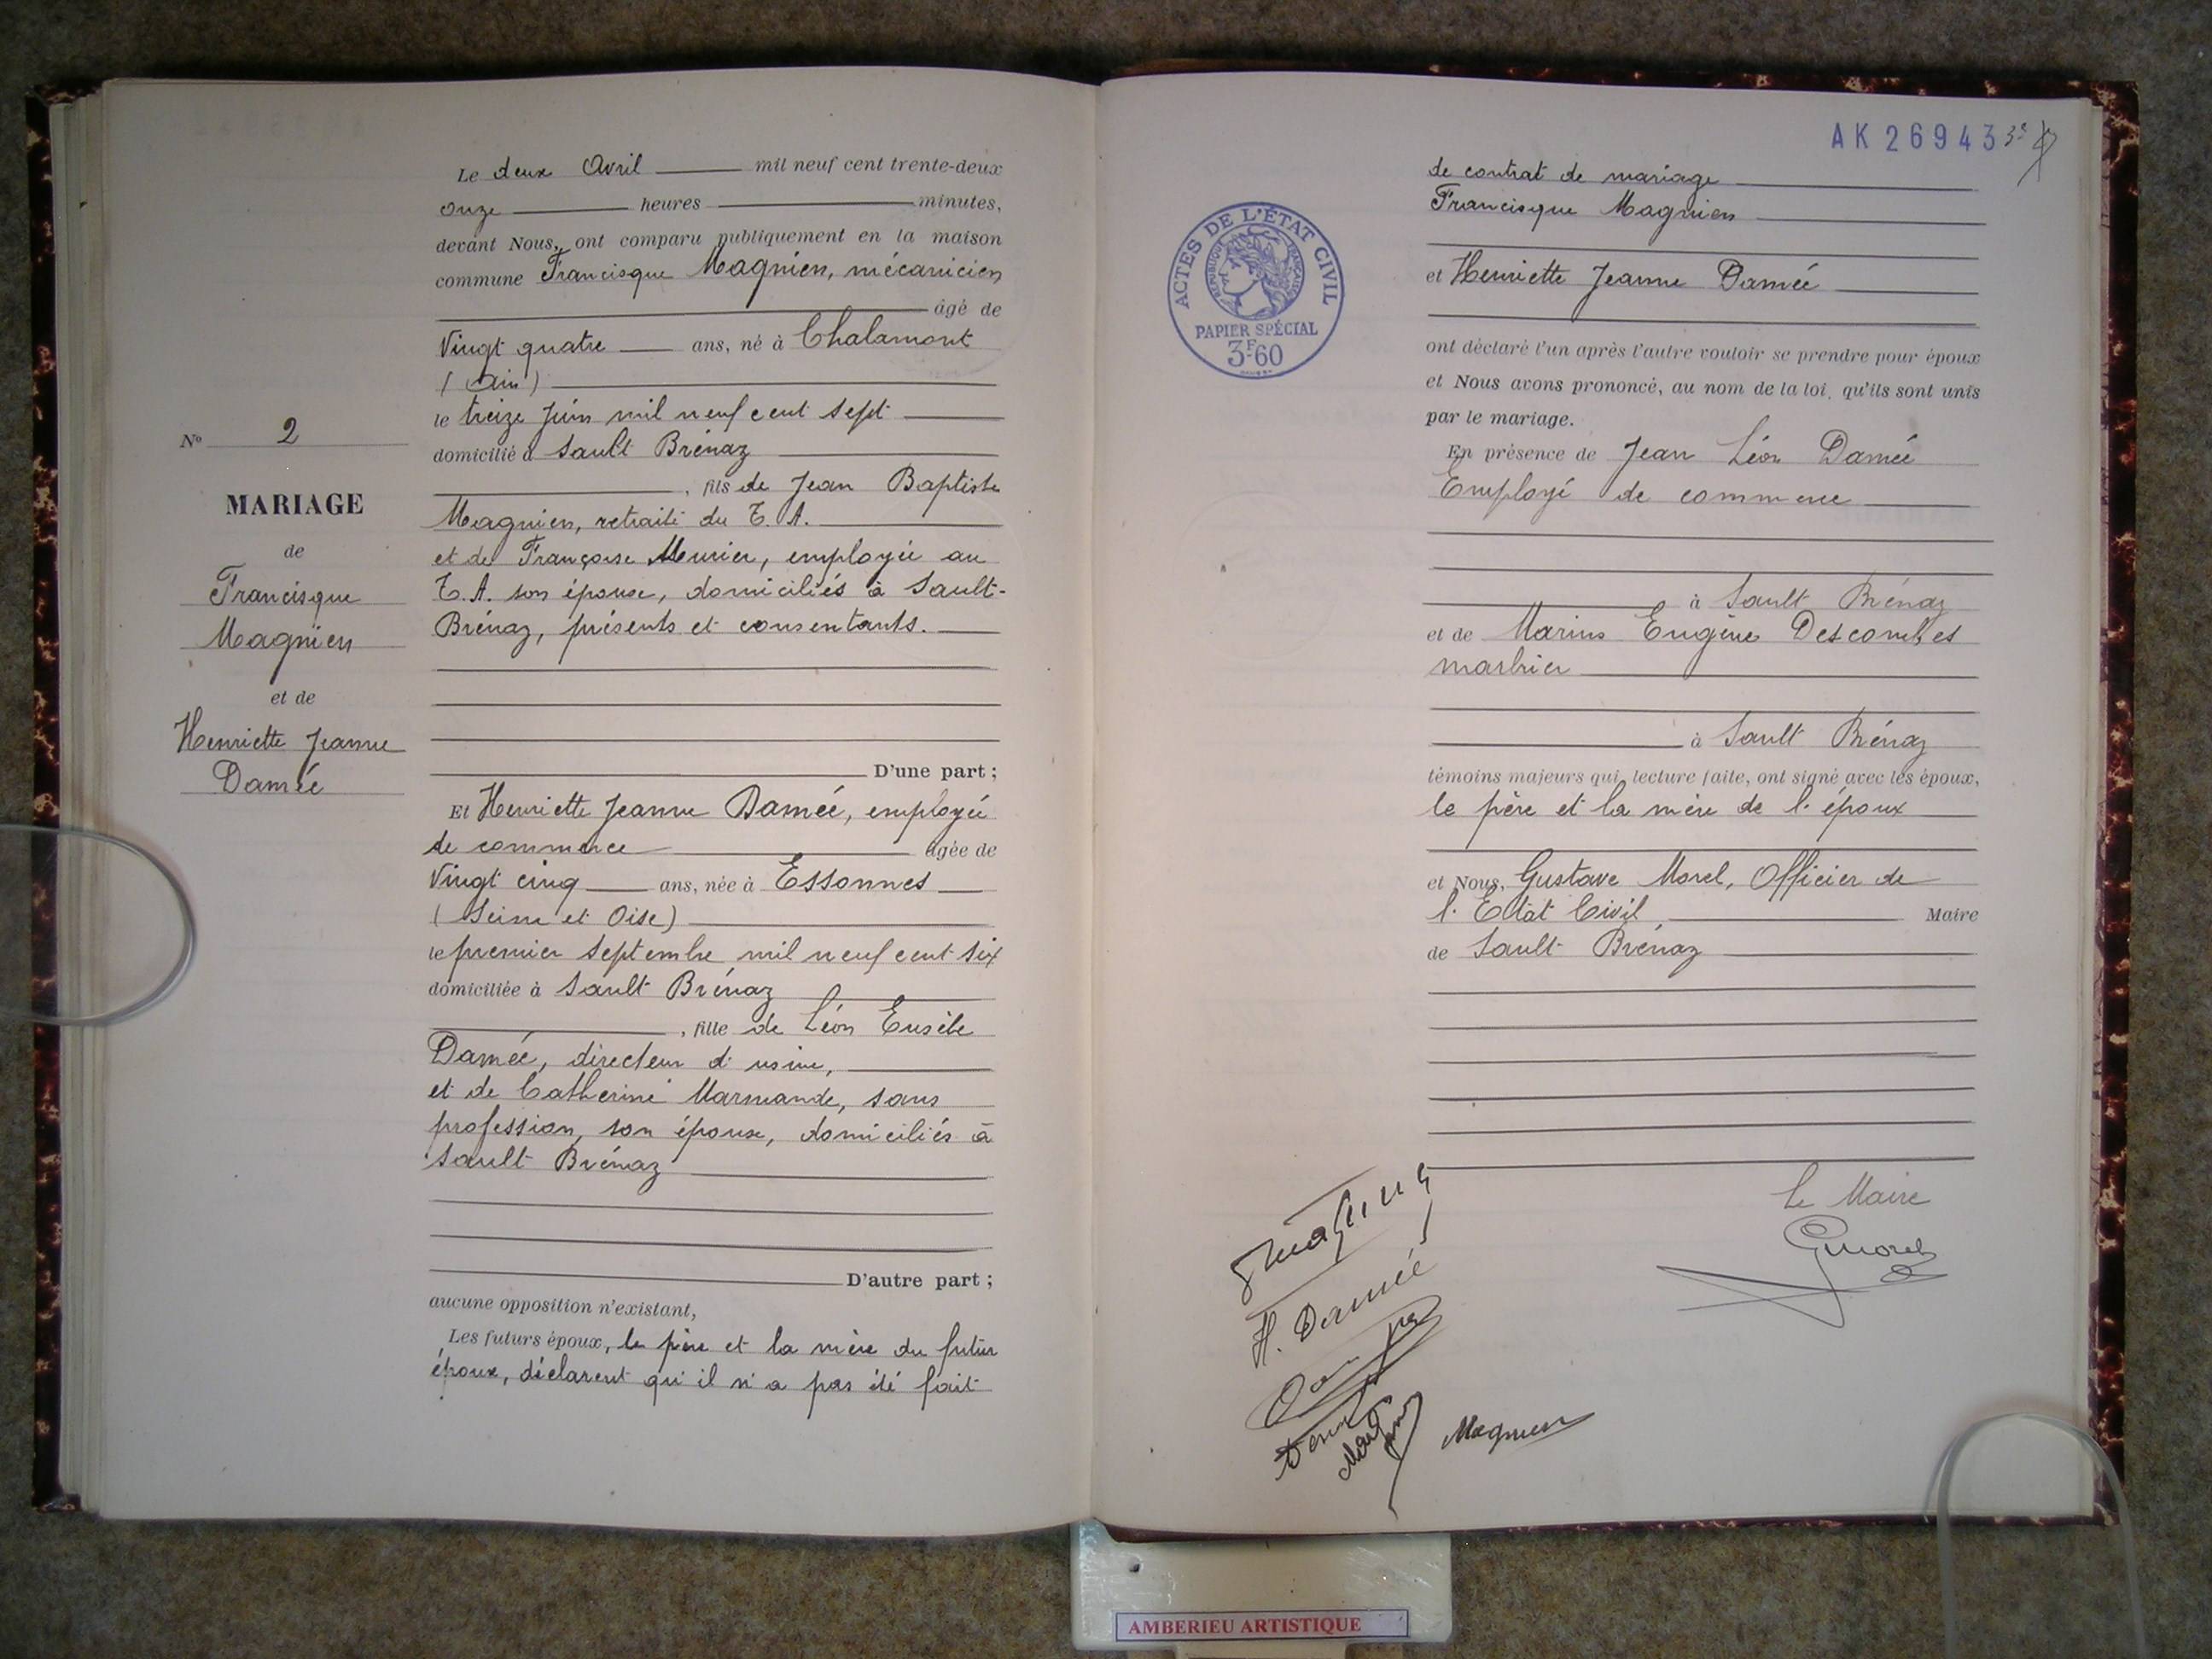 Le deux Avril mil neuf cent trente-deux
onze heures minutes,
devant Nous, ont comparu publiquement en la maison
commune Francisque Magnien, mécanicien
âgé de
Vingt quatre ans, né à Chalamont
(Ain)
le treize Juin mil neuf cent sept
domicilié à Sault Brénaz
, fils de Jean Baptiste
Magnien, retraité du T. A.
et de Françoise Meunier, employée au
T. A. son épouse, domiciliés à Sault-
Brénaz, présents et consentants.
D'une part ;
No 2
MARIAGE
de
Francisque
Magnien
et de
Henriette Jeanne
Damée
Et Henriette Jeanne Damée, employée
de commerce âgée de
Vingt cinq ans, née à Essonnes
(Seine et Oise)
le premier septembre mil neuf cent six
domiciliée à Sault Brénaz
, fille de Léon Eusèbe
Damée, directeur d'usine,
et de Catherine Marmande, sans
profession, son épouse, domiciliés à
Sault Brénaz
D'autre part ;
aucune opposition n'existant,
Les futurs époux, le père et la mère du futur
époux, déclarent qu'il n'a pas été fait
AK 26943
de contrat de mariage
Francisque Magnien
et Henriette Jeanne Damée
ont déclaré l'un après l'autre vouloir se prendre pour époux
et Nous avons prononcé, au nom de la loi, qu'ils sont unis
par le mariage.
En présence de Jean Léon Damée
Employé de commerce
à Sault Brénaz
et de Marius Eugène Descombes
marbrier
à Sault Brénaz
témoins majeurs qui, lecture faite, ont signé avec les époux,
le père et la mère de l'époux
et Nous, Gustave Morel, Officier de
l'Etat Civil Maire
de Sault Brénaz
ACTES DE L'ÉTAT CIVIL
RÉPUBLIQUE FRANÇAISE
PAPIER SPÉCIAL
3F60
Le Maire
GMorel
H. Damée
Magnien
AMBERIEU ARTISTIQUE